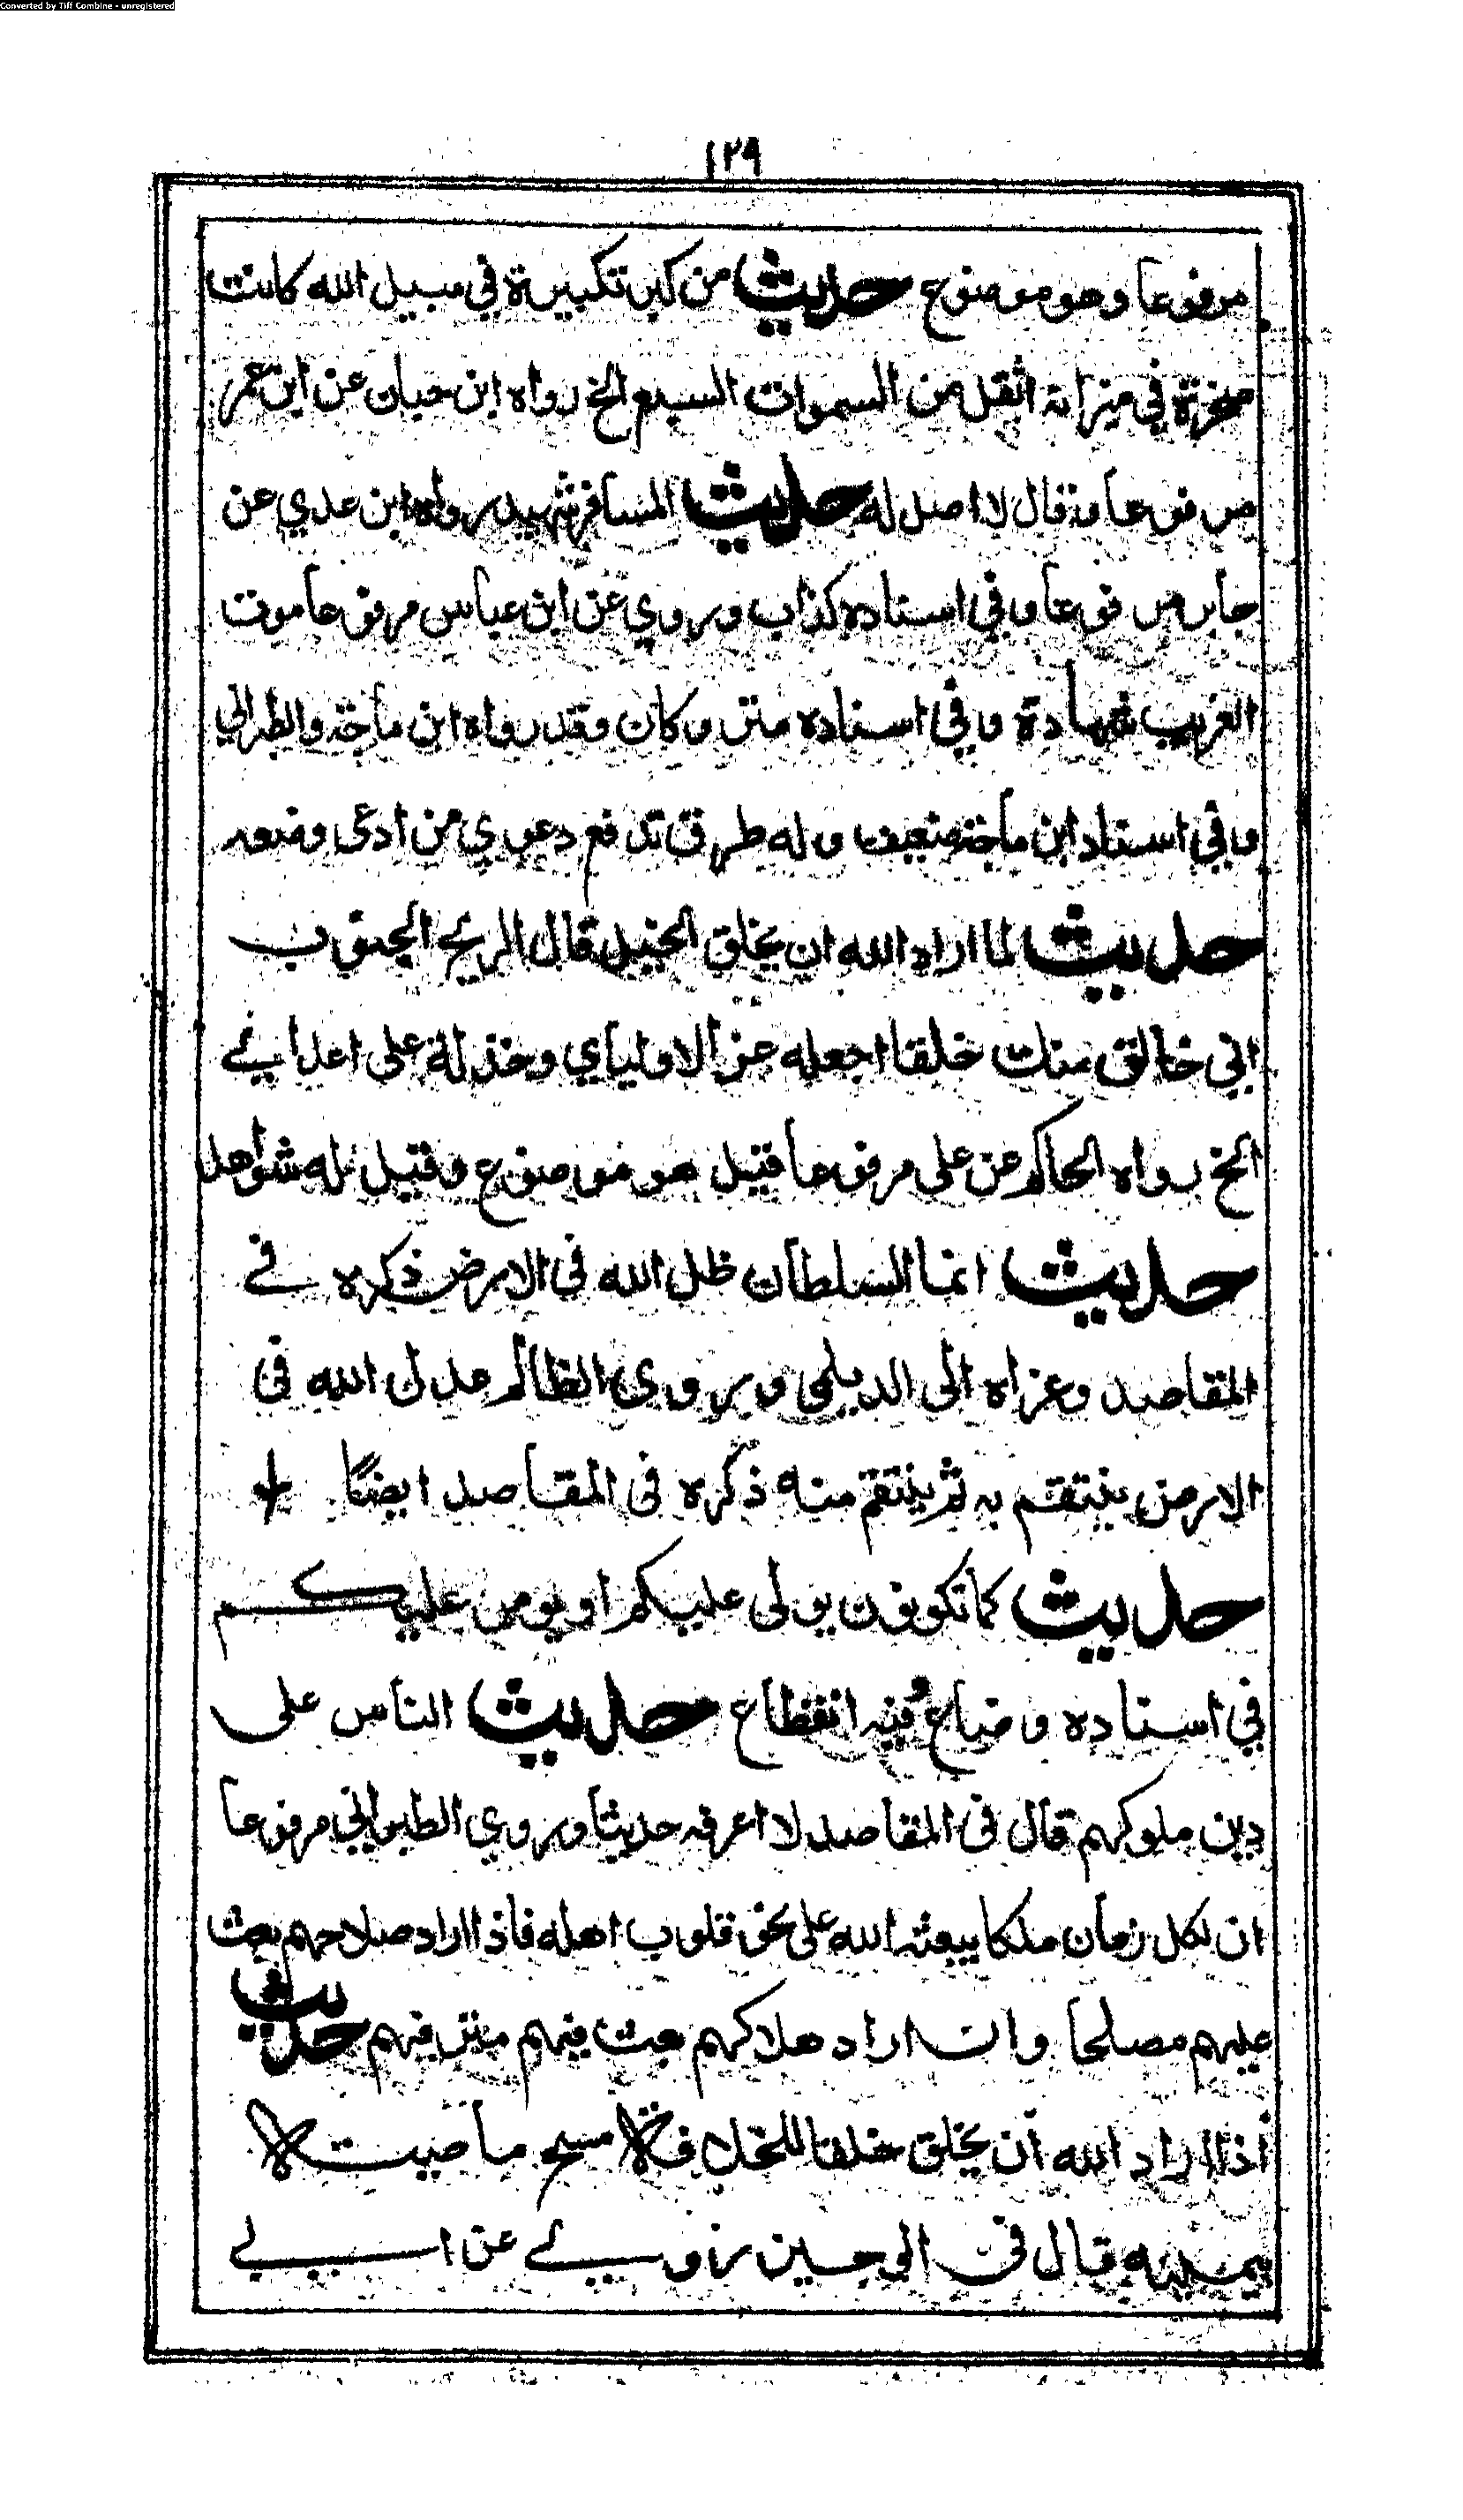 Converted by Tiff Combine - unregistered
١٢٩
مرفوعا وهو موضوع حديث من كبر تكبيرة في سبيل الله كانت
صخرة في ميزانه اثقل من السموات السبع الخ رواه ابن حبان عن ابن عمر
مرفوعا وقال لا اصل له حديث المسافر شهيد رواه ابن عدي عن
جابر مرفوعا وفي اسناده كذاب وروي عن ابن عباس مرفوعا موت
الغريب شهادة وفي اسناده متروكان وقد رواه ابن ماجه والطبراني
وفي اسناد ابن ماجه ضعيف وله طرق تدفع دعوي من ادعى وضعه
حديث لما اراد الله ان يخلق الخيل قال للريح الجنوب
اني خالق منك خلقا اجعله عزا لاوليائي ومذلة على اعدائي
الخ رواه الحاكم عن على مرفوعا قيل هو موضوع وقيل له شواهد
حديث انما السلطان ظل الله في الارض ذكره في
المقاصد وعزاه الى الديلمي ويروى الظالم عدل الله في
الارض ينتقم به ثم ينتقم منه ذكره في المقاصد ايضًا
حديث كما تكونون يولى عليكم او يومر عليكم
في اسناده وضاع وفيه انقطاع حديث الناس على
دين ملوكهم قال في المقاصد لا اعرفه حديثا وروي الطبراني مرفوعا
ان لكل زمان ملكا يبعثه الله على نحو قلوب اهله فاذا اراد صلاحهم بعث
عليهم مصلحا وان اراد هلاكهم بعث فيهم مترفيهم حديث
اذا اراد الله ان يخلق خلقا للخلافة مسح ناصيته
بيمينه قال في روي عن ابي